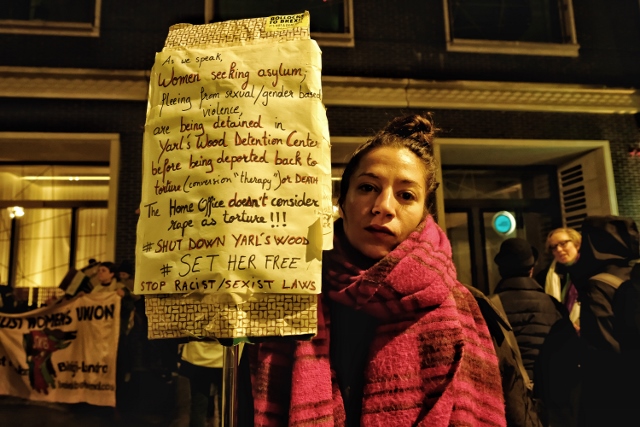 BOLLOCKS
TO BREXIT
As we speak,
Women seeking asylum,
fleeing from sexual/gender based
violence,
are being detained in
Yarl's Wood Detention Center
before being deported back to
torture (conversion "therapy") or DEATH
The Home Office doesn't consider
rape as torture!!!
# SHUT DOWN YARL'S WOOD
# SET HER FREE
STOP RACIST/SEXIST LAWS
WOMEN'S UNION